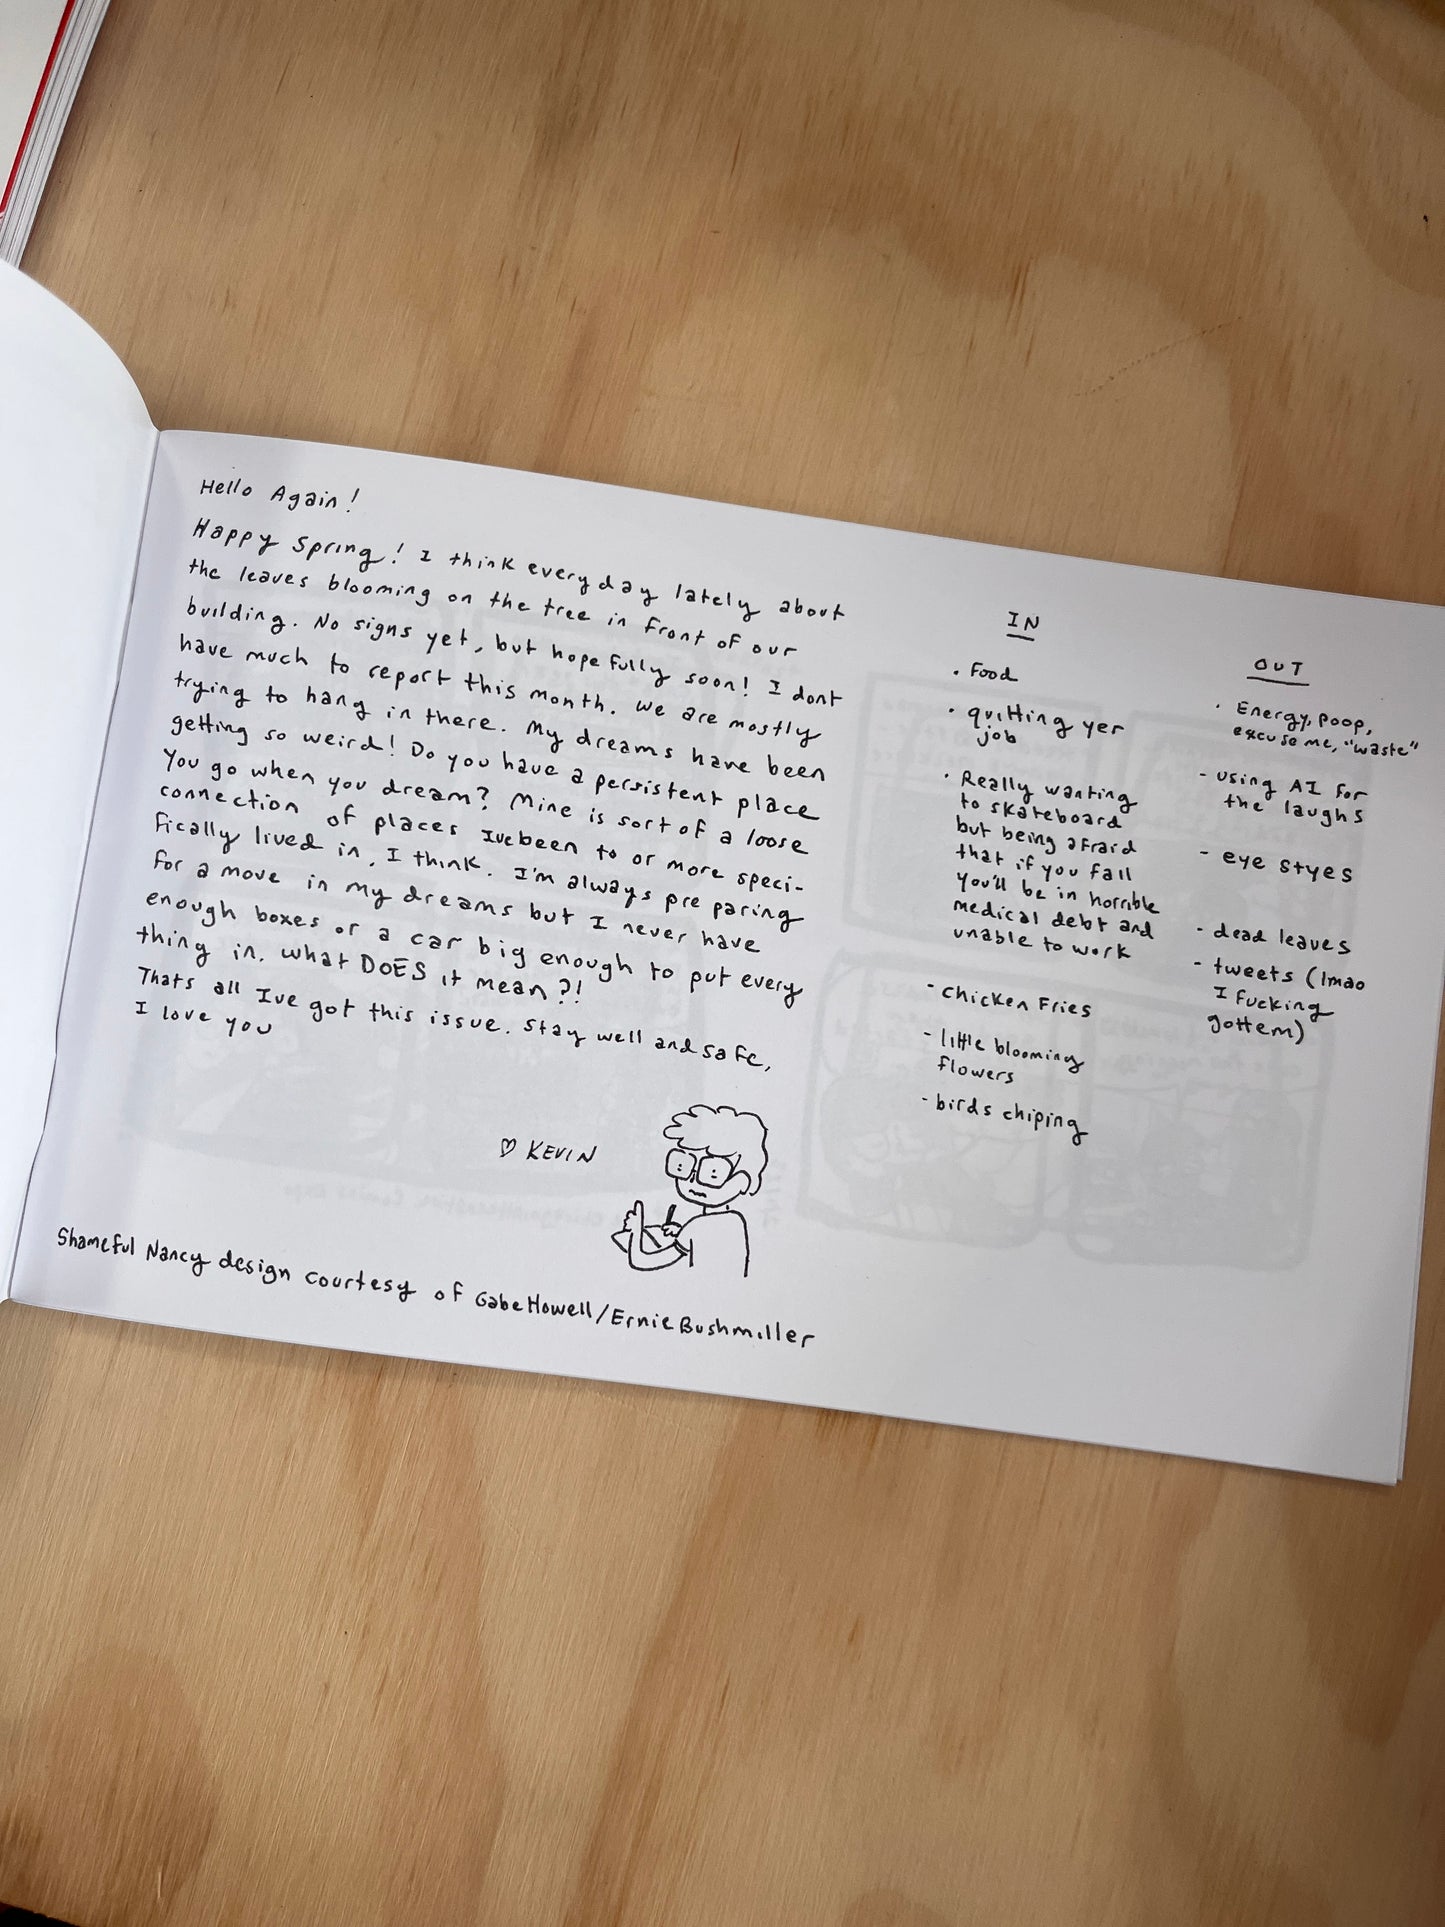 Hello Again!
Happy Spring! I think everyday lately about
the leaves blooming on the tree in front of our
building. No signs yet, but hopefully soon! I dont
have much to report this month. We are mostly
trying to hang in there. My dreams have been
getting so weird! Do you have a persistent place
You go when you dream? Mine is sort of a loose
connection of places Ive been to or more speci-
fically lived in, I think. I'm always preparing
for a move in my dreams but I never have
enough boxes or a car big enough to put every
thing in. What DOES it mean?!
Thats all Ive got this issue. Stay well and safe,
I love you
♡ KEVIN
Shameful Nancy design courtesy of Gabe Howell/Ernie Bushmiller
IN
· Food
· quitting yer
job
· Really wanting
to skateboard
but being afraid
that if you fall
you'll be in horrible
medical debt and
unable to work
- chicken fries
- little blooming
flowers
- birds chiping
OUT
· Energy, poop,
excuse me, "waste"
- using AI for
the laughs
- eye styes
- dead leaves
- tweets (lmao
I fucking
gottem)